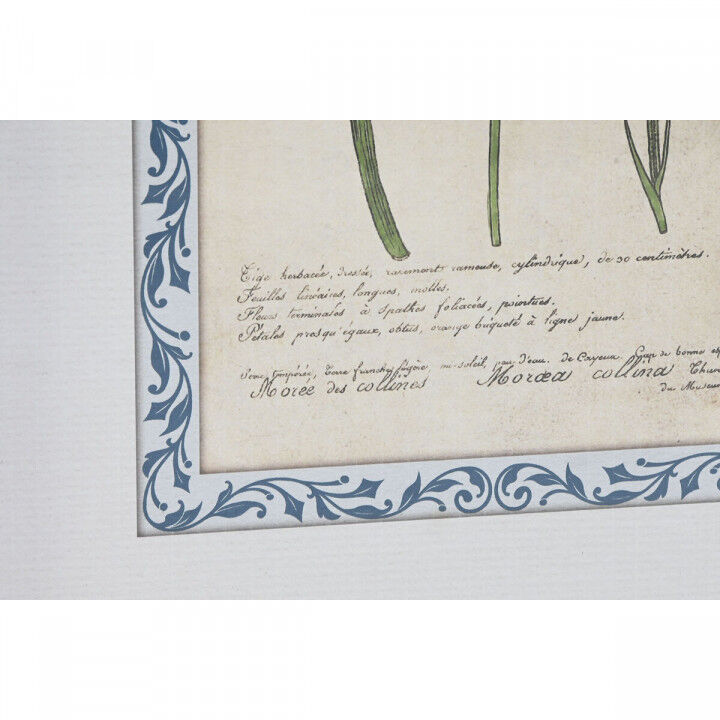 Tige herbacée, dressée, rarement rameuse, cylindrique, de 30 centimètres.
Feuilles linéaires, longues, molles.
Fleurs terminales à Spathes foliacées, pointues.
Pétales presqu'égaux, obtus, orange briqueté à ligne jaune.
terre franche légère, mi-soleil, peu d'eau. de Cayeux. de bonne
Morée des collines Moræa collina Thun
du Museum